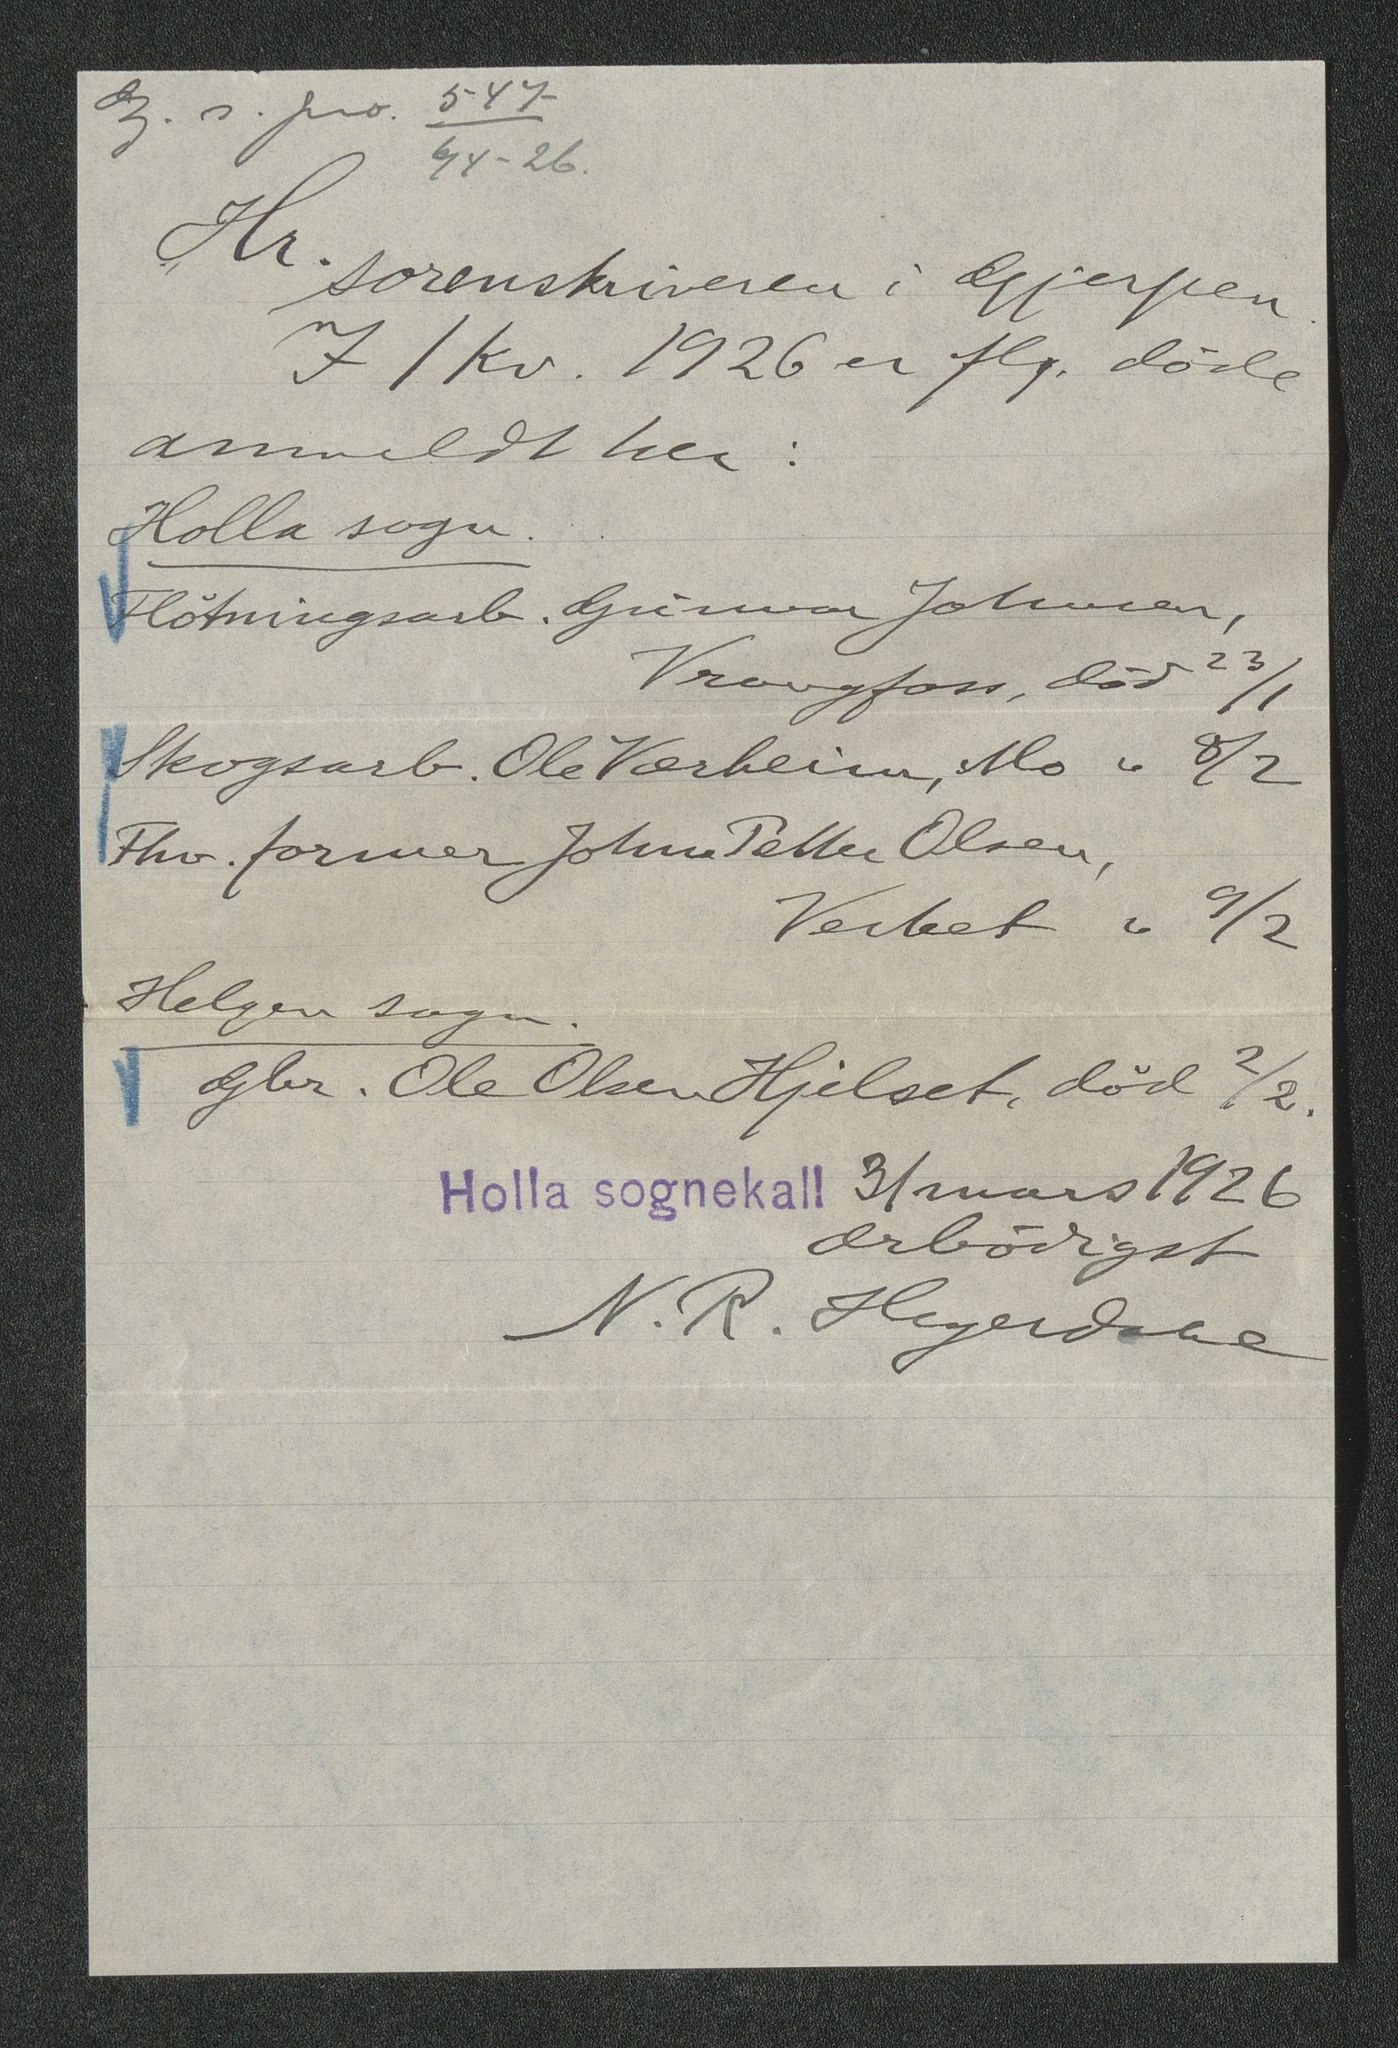 G. s. jno. 547
6/4-26.
Hr.
sorenskriveren i Gjerpen.
I 1 kv. 1926 er flg. döde
anmeldt her:
Holla sogn.
Flötningsarb. Gunnar Johnsen,
Vrangfoss, död 23/1
Skogsarb. Ole Værheim, Mo " 8/2
Fhv. former John Petter Olsen,
Verket " 9/2
Helgen sogn.
Gbr. Ole Olsen Hjelset, död 2/2.
Holla sognekall 31 mars 1926
ærbödigst
N. R. Hegerdahl